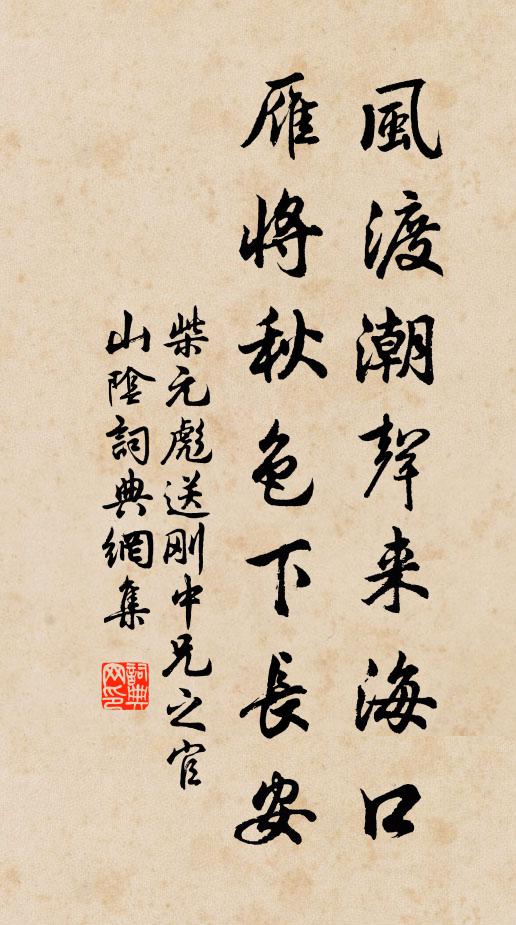 風渡潮聲来海口
雁將秋色下長安
柴元彪送剛中兄之官
山陰詞典網集
詞典网印